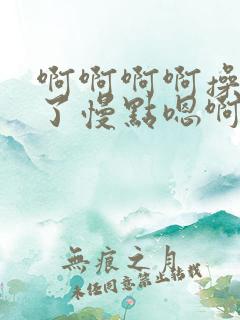 啊啊啊啊操
了慢點嗯啊
無痕之月
未任同意禁止轉載